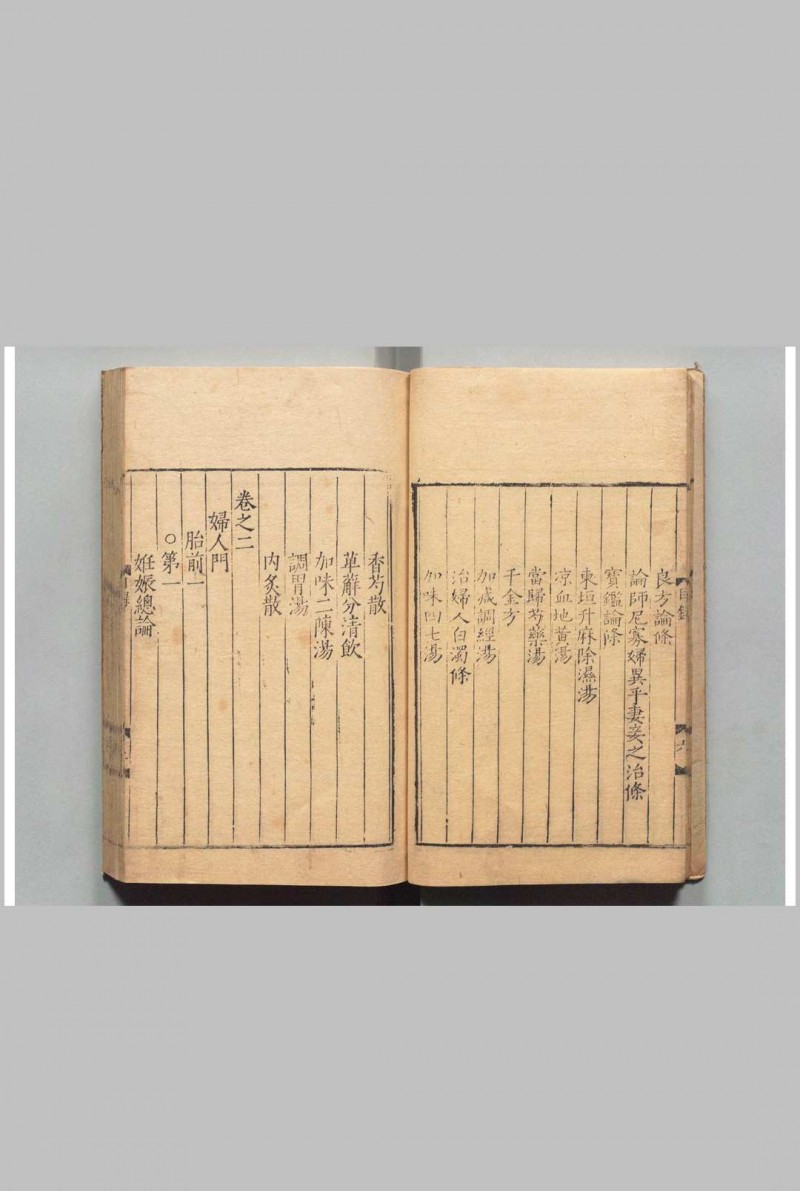 良方論條
論師尼寡婦異乎妻妾之治條
寶鑑論條
東垣升麻除濕湯
凉血地黄湯
當歸芍藥湯
千金方
加减調經湯
治婦人白濁條
加味四七湯
香芍散
萆薢分清飲
加味二陳湯
調胃湯
内灸散
卷之二
婦人門
胎前一
○第一
妊娠總論